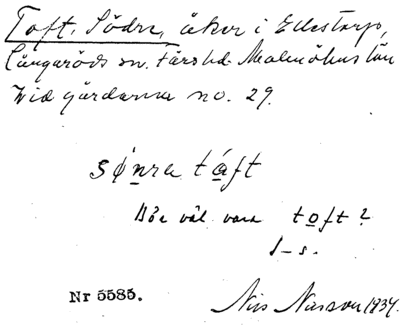 Toft, Södra, åker i Ellestorp,
Långaröds sn. Färs hd. Malmöhus län
Vid gårdarna no. 29.
sǿnra táft
Bör väl vara toft?
J–s.
Nr 5585.
Nils Nilsson 1934.